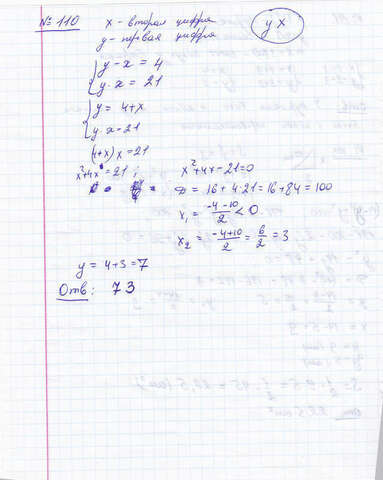 № 110 x - вторая цифра
y - первая цифра
yx
y - x = 4
y · x = 21
y = 4+x
y · x = 21
(4+x) x = 21
x²+4x = 21 ; x²+4x-21=0
D = 16+4·21=16+84=100
x₁ = (-4-10)/2 < 0
x₂ = (-4+10)/2 = 6/2 = 3
y = 4+3=7
Отв: 73